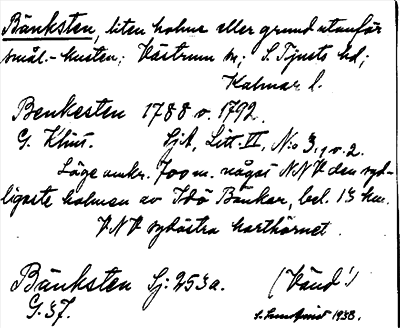 Bänksten, liten holme eller grund utanför
smål.-kusten; Västrum sn; S. Tjusts hd;
Kalmar l.
Benkesten 1788 o. 1792.
G. Klint. SjA, Litt. III, No 3, 1 o. 2.
Läge omkr. 700 m. något NNV den syd-
ligaste holmen av Idö Bänkar, bel. 13 km.
VNV sydöstra karthörnet.
Bänksten Sj: 253 a. (Vänd!)
G. 37. 1938.